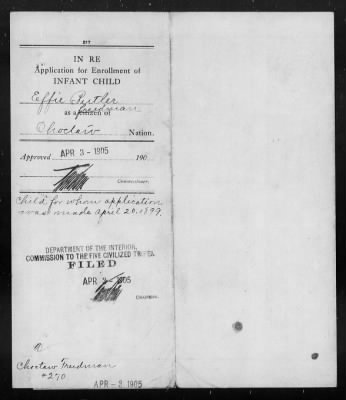 217
IN RE
Application for Enrollment of
INFANT CHILD
Effie Butler
Freedman
as a citizen of
Choctaw Nation.
Approved APR 3 - 1905 190
Commissioner.
Child for whom application
was made April 20, 1899.
DEPARTMENT OF THE INTERIOR,
COMMISSION TO THE FIVE CIVILIZED TRIBES.
FILED
APR 3 - 1905
Chairman.
Choctaw Freedman
#270
APR - 3 1905